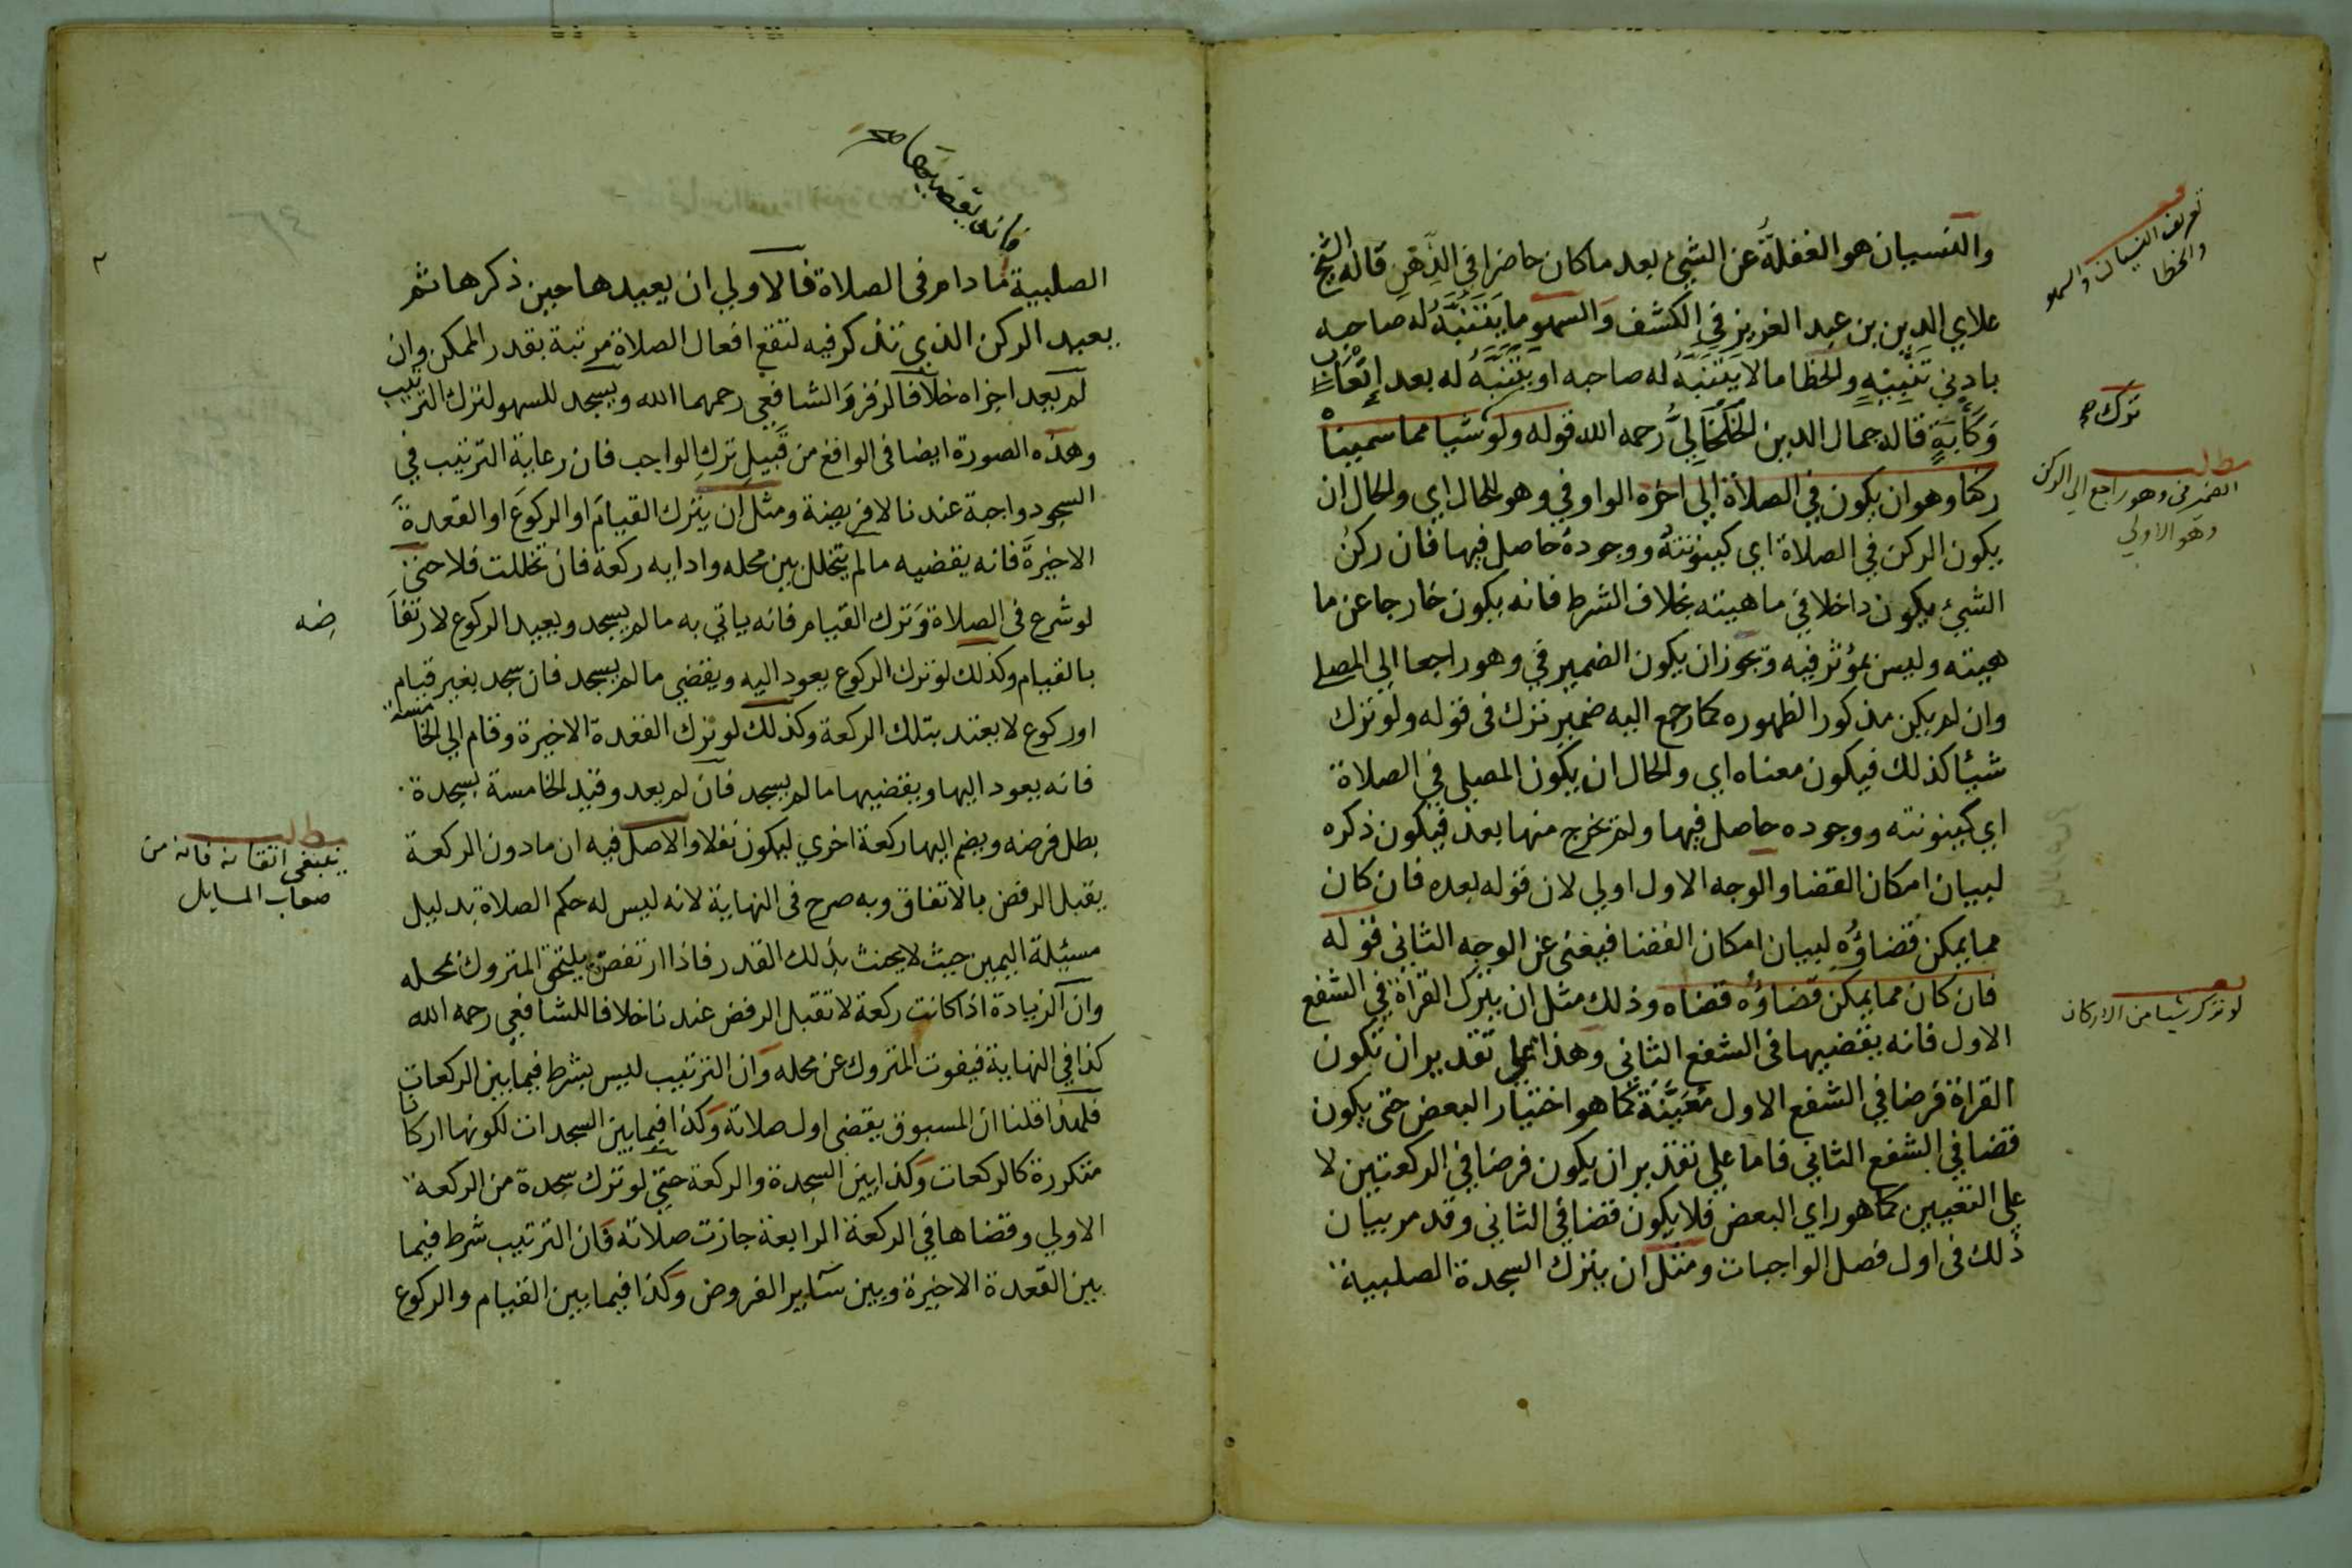 والنسيان هو الغفلة عن الشيء بعد ما كان حاضرا في الذهن قاله الشيخ
علاي الدين بن عبد العزيز في الكشف والسهو ما يتنبه له صاحبه
بادني تنبيه والخطا ما لا يتنبه له صاحبه او يتنبه له بعد إتعاب
قاله جمال الدين الخلخالي رحمه الله قوله ولو شيا مما سميناه
ركنا وهو ان يكون في الصلاة الي اخره الواو في وهو للحال اي والحال ان
يكون الركن في الصلاة اي كينونته ووجوده حاصل فيها فان ركن
الشيء يكون داخلا في ماهيته بخلاف الشرط فانه يكون خارجا عن ما
هيته وليس بمؤثر فيه ويجوز ان يكون الضمير في وهو راجعا الي المصلي
وان لم يكن مذكورا لظهوره كما رجع اليه ضمير ترك في قوله ولو ترك
شيئا كذلك فيكون معناه اي والحال ان يكون المصلي في الصلاة
اي كينونته ووجوده حاصل فيها ولم يخرج منها بعد فيكون ذكره
لبيان امكان القضا والوجه الاول اولي لان قوله بعده فان كان
مما يمكن قضاؤه لبيان امكان القضا فيغني عن الوجه الثاني قوله
فان كان مما يمكن قضاؤه قضاه وذلك مثل ان يترك القراة في الشفع
الاول فانه يقضيها في الشفع الثاني وهذا علي تقدير ان تكون
القراة فرضا في الشفع الاول معينة كما هو اختيار البعض حتي يكون
قضا في الشفع الثاني فاما علي تقدير ان يكون فرضا في الركعتين لا
علي التعيين كما هو راي البعض فلا يكون قضا في الثاني وقد مر بيان
ذلك في اول فصل الواجبات ومثل ان يترك السجدة الصلبية
تعريف النسيان والسهو
والخطا
ترك صح
مطلب
الضمير في وهو راجع الي الركن
وهو الاولي
لو تذكر شيا من الاركان
فانه يقضيها صح
الصلبية ما دام في الصلاة فالاولي ان يعيدها حين ذكرها ثم
يعيد الركن الذي تذكر فيه لتقع افعال الصلاة مرتبة بقدر الممكن وان
لم يعد اجزاه خلافا لزفر والشافعي رحمهما الله ويسجد للسهو لترك الترتيب
وهذه الصورة ايضا في الواقع من قبيل ترك الواجب فان رعاية الترتيب في
السجود واجبة عندنا لا فريضة ومثل ان يترك القيام او الركوع او القعدة
الاخيرة فانه يقضيه ما لم يتخلل بين محله وادايه ركعة فان تخللت فلا حتي
لو شرع في الصلاة وترك القيام فانه ياتي به ما لم يسجد ويعيد الركوع لارتفا
ضه
بالقيام وكذلك لو ترك الركوع يعود اليه ويقضي ما لم يسجد فان سجد بغير قيام
او ركوع لا يعتد بتلك الركعة وكذلك لو ترك القعدة الاخيرة وقام الي الخامسة
فانه يعود اليها ويقضيها ما لم يسجد فان لم يعد وقيد الخامسة بسجدة
بطل فرضه ويضم اليها ركعة اخري ليكون نفلا والاصل فيه ان ما دون الركعة
يقبل الرفض بالاتفاق وبه صرح في النهاية لانه ليس له حكم الصلاة بدليل
مسيلة اليمين حيث لا يحنث بذلك القدر فاذا ارتفض يلتحق المتروك بمحله
وان الزيادة اذا كانت ركعة لا تقبل الرفض عندنا خلافا للشافعي رحمه الله
كذا في النهاية فيفوت المتروك عن محله وان الترتيب ليس بشرط فيما بين الركعات
فلهذا قلنا ان المسبوق يقضي اول صلاته وكذا فيما بين السجدات لكونها اركانا
متكررة كالركعات وكذا بين السجدة والركعة حتي لو ترك سجدة من الركعة
الاولي وقضاها في الركعة الرابعة جازت صلاته فان الترتيب شرط فيما
بين القعدة الاخيرة وبين ساير الفروض وكذا فيما بين القيام والركوع
مطلب
ينبغي اتقانه فانه من
صعاب المسايل